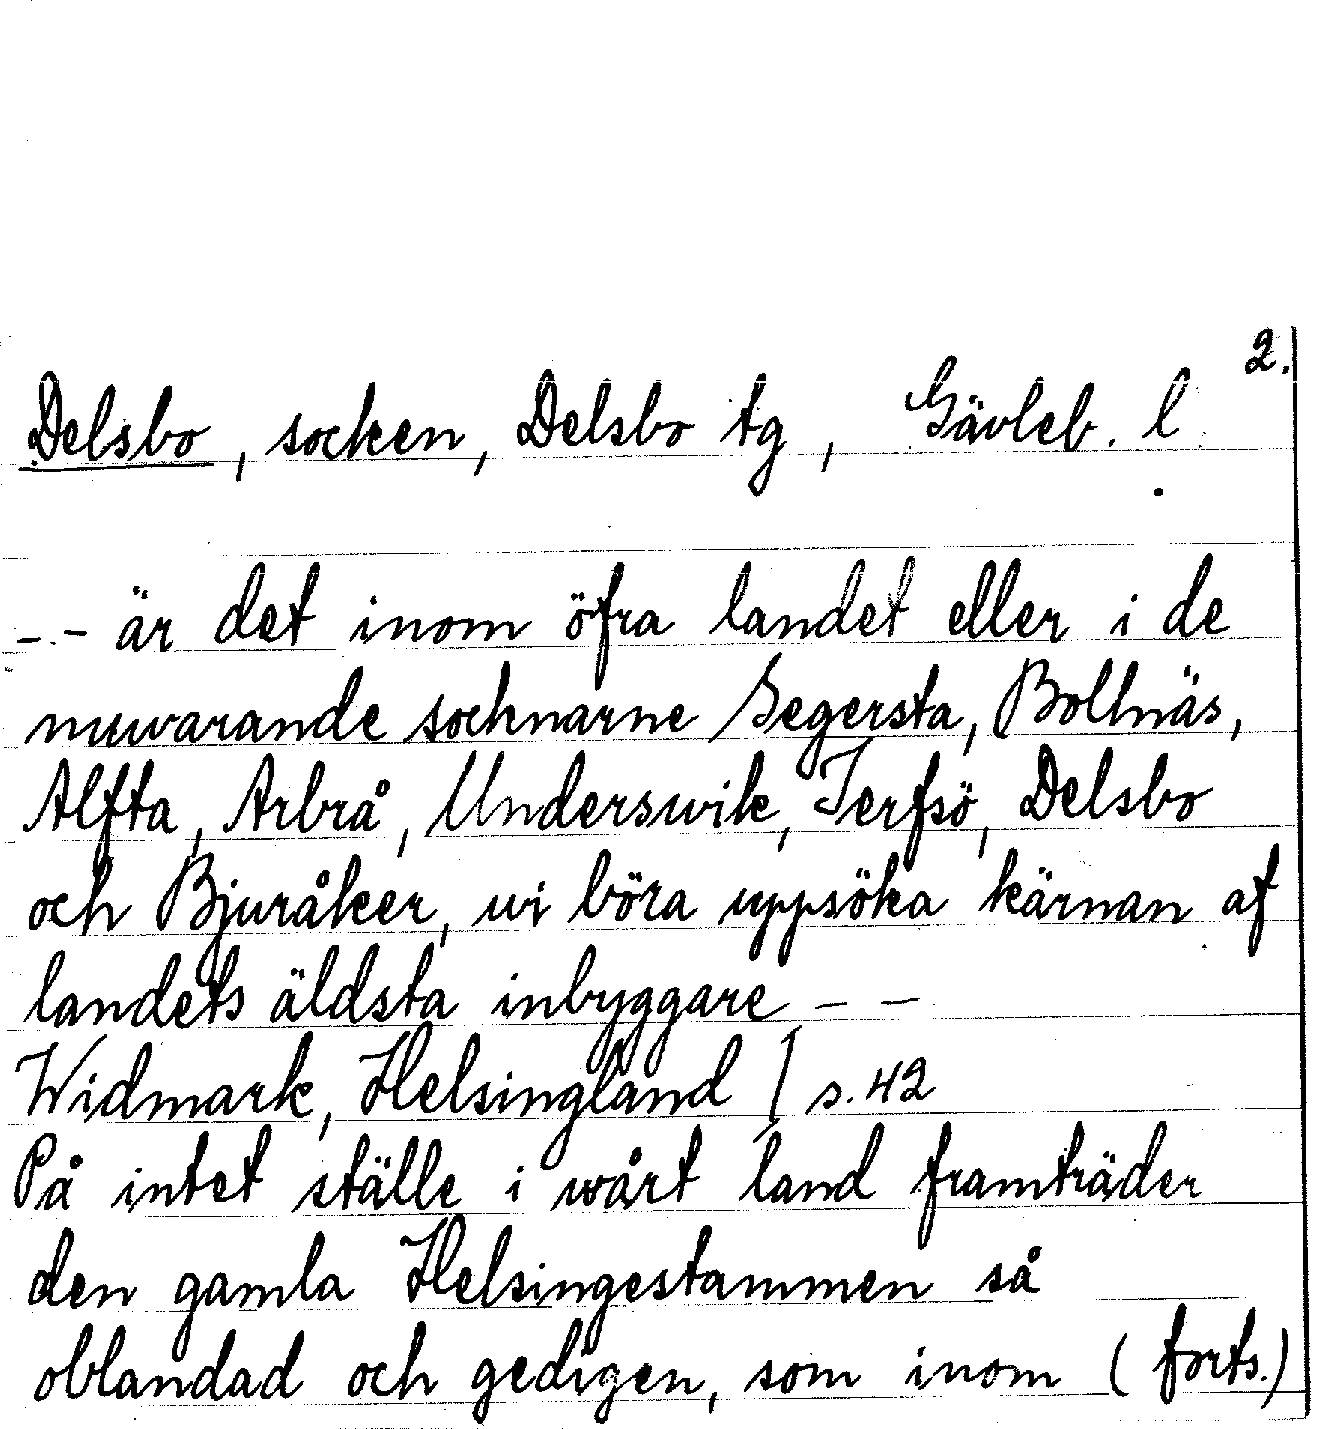 2.
Delsbo, socken, Delsbo tg, Gävleb. l
-.- är det inom öfra landet eller i de
nuwarande socknarne Segersta, Bollnäs,
Alfta, Arbrå, Underswik, Jerfsö, Delsbo
och Bjuråker, wi böra uppsöka kärnan af
landets äldsta inbyggare - -
Widmark, Helsingland / s. 42
På intet ställe i wårt land framträder
den gamla Helsingestammen så
oblandad och gedigen, som inom (forts.)